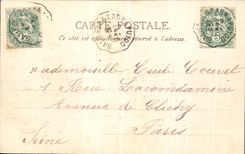 CARTE POSTALE
Ce côté est exclusivement réservé à l'adresse.
Mademoiselle Cecile
1 Rue Lacondamine
Avenue de Clichy
Paris
Seine